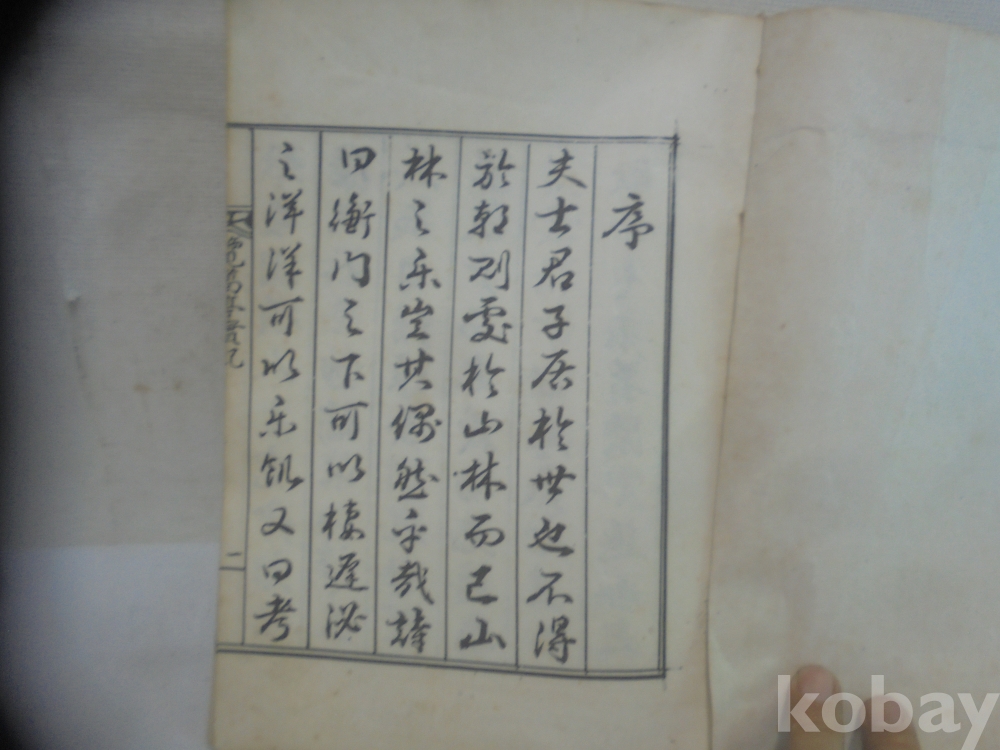 序
夫士君子居於世也不得
於朝則處於山林而已山
林之樂豈其偶然乎哉詩
曰衡門之下可以棲遲泌
之洋洋可以樂飢又曰考
一
kobay